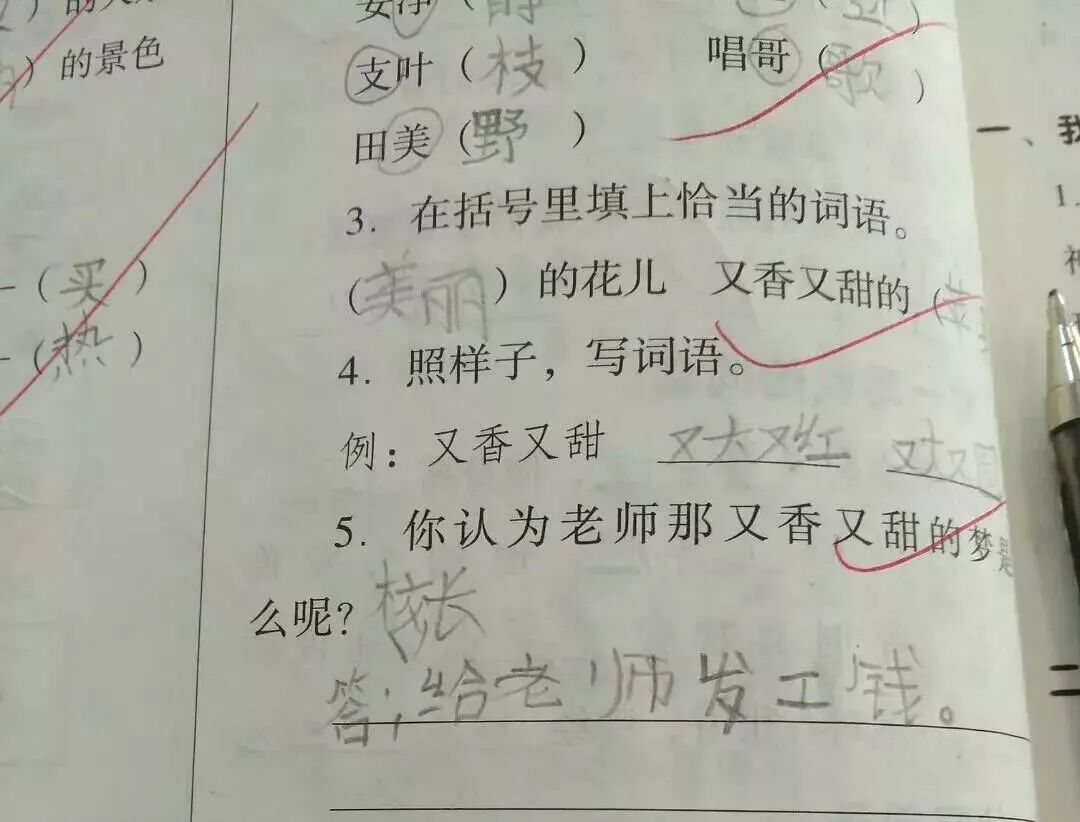 的景色
支叶（枝）
唱哥（歌）
田美（野）
一、我
1.
3. 在括号里填上恰当的词语。
（买）
（美丽）的花儿 又香又甜的（
（热）
4. 照样子，写词语。
例：又香又甜 又大又红 又大又
5. 你认为老师那又香又甜的梦是
么呢？ 校长
答：给老师发工钱。
二